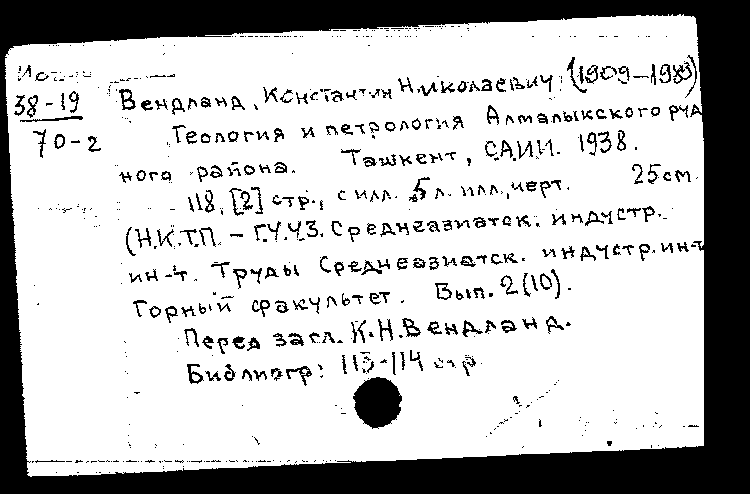 38-19
70-2
Вендланд, Константин Николаевич (1909-1983)
Геология и петрология Алмалыкского руд
ного района. Ташкент, САИИ. 1938.
118, [2] стр., с илл. 5 л. илл., черт. 25 см.
(Н.К.Т.П. – Г.У.У.З. Среднеазиатск. индустр.
ин-т. Труды Среднеазиатск. индустр. ин-т
Горный факультет. Вып. 2(10).
Перед загл. К.Н. Вендланд.
Библиогр: 113-114 стр.